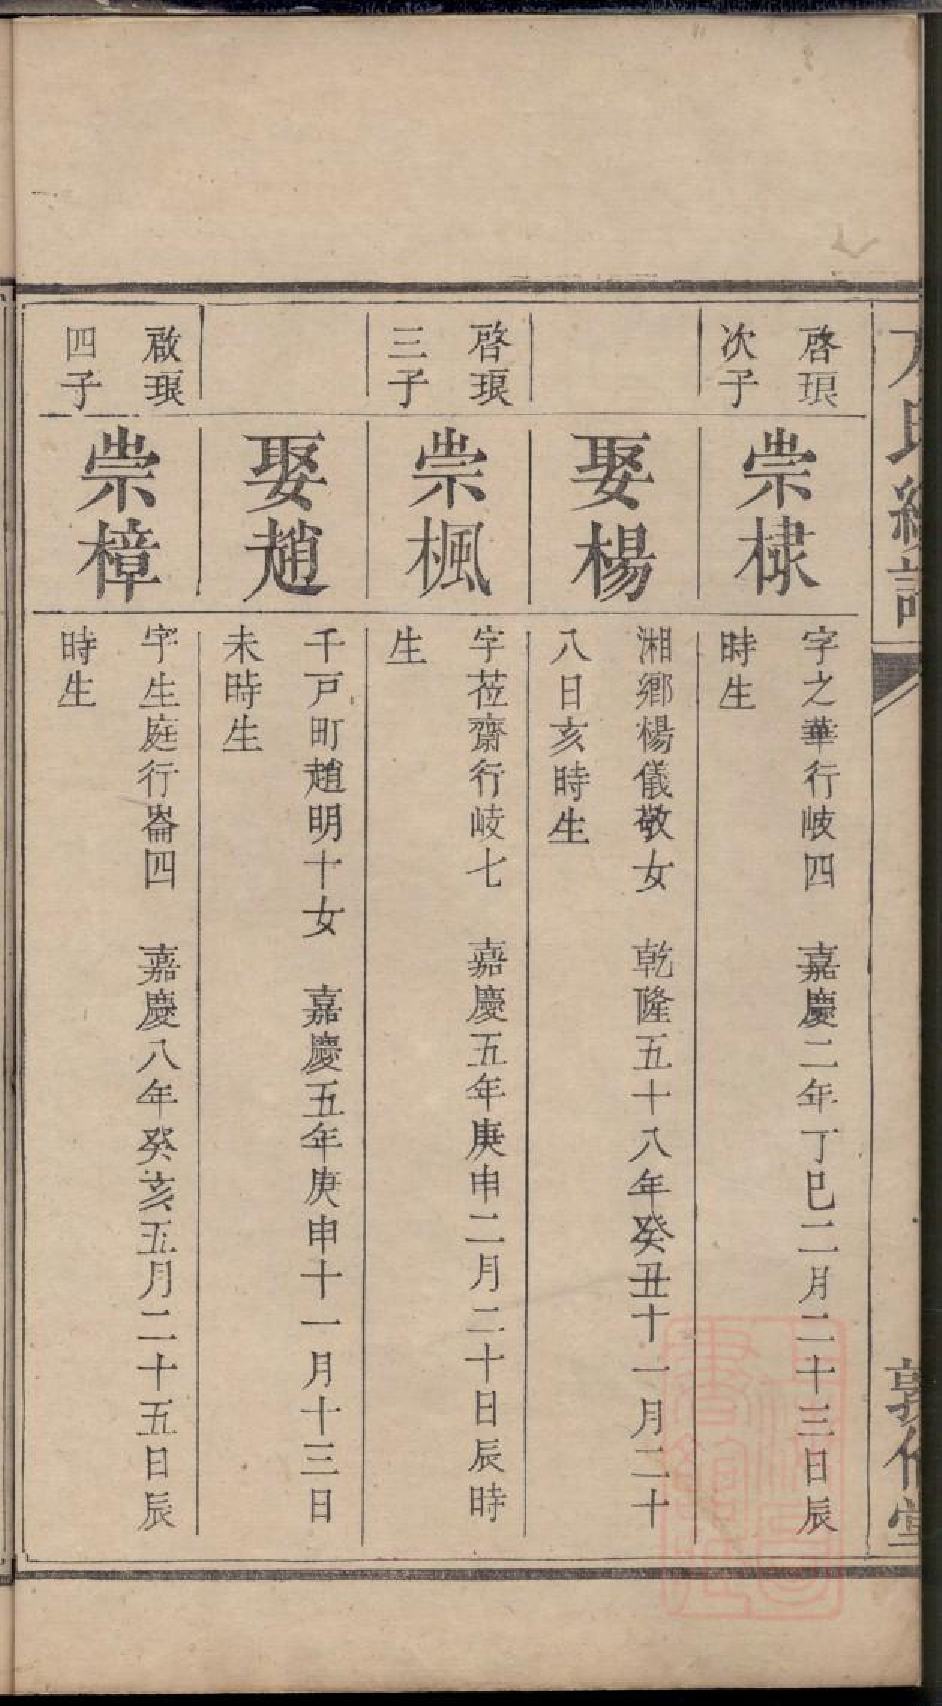 啓珢
次子
崇棣
字之華行岐四　嘉慶二年丁巳二月二十三日辰
時生
娶楊
湘鄉楊儀敬女　乾隆五十八年癸丑十一月二十
八日亥時生
啓珢
三子
崇楓
字莅齋行岐七　嘉慶五年庚申二月二十日辰時
生
娶趙
千戸町趙明十女　嘉慶五年庚申十一月十三日
未時生
啟珢
四子
崇樟
字生庭行崙四　嘉慶八年癸亥五月二十五日辰
時生